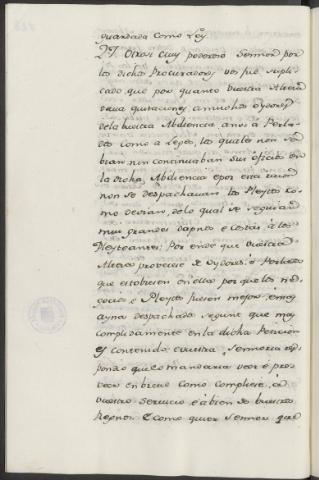 guardada como Ley.
27. Otrosi muy poderoso Sennor por
los dichos Procuradores vos fué supli-
cado que por quanto vuestra Alteza
dava quitaciones á muchos oydores
dela vuestra Abdiencia ansi a Perla-
dos como a Legos, los quales non
nin continuaban sus oficios en
la dicha Abdiencia é por esta razon
non se despachavan los Pleytos co-
mo devian, delo qual se seguian
muy grandes dapnos é costas á los
Pleyteantes: Por ende que vuestra
Alteza proveiese de oydores é Perlados
que estobiesen en ella por que los ne-
gocios é Pleytos fuesen mejor é mas
ayna despachados segunt que mas
complidamente en la dicha Peticion
es contenido é vuestra Sennoria res-
pondio que lo mandaria veer é pro-
veer en breve como compliese á
vuestro servicio é á bien de vuestros
Regnos. E como quier Sennor que